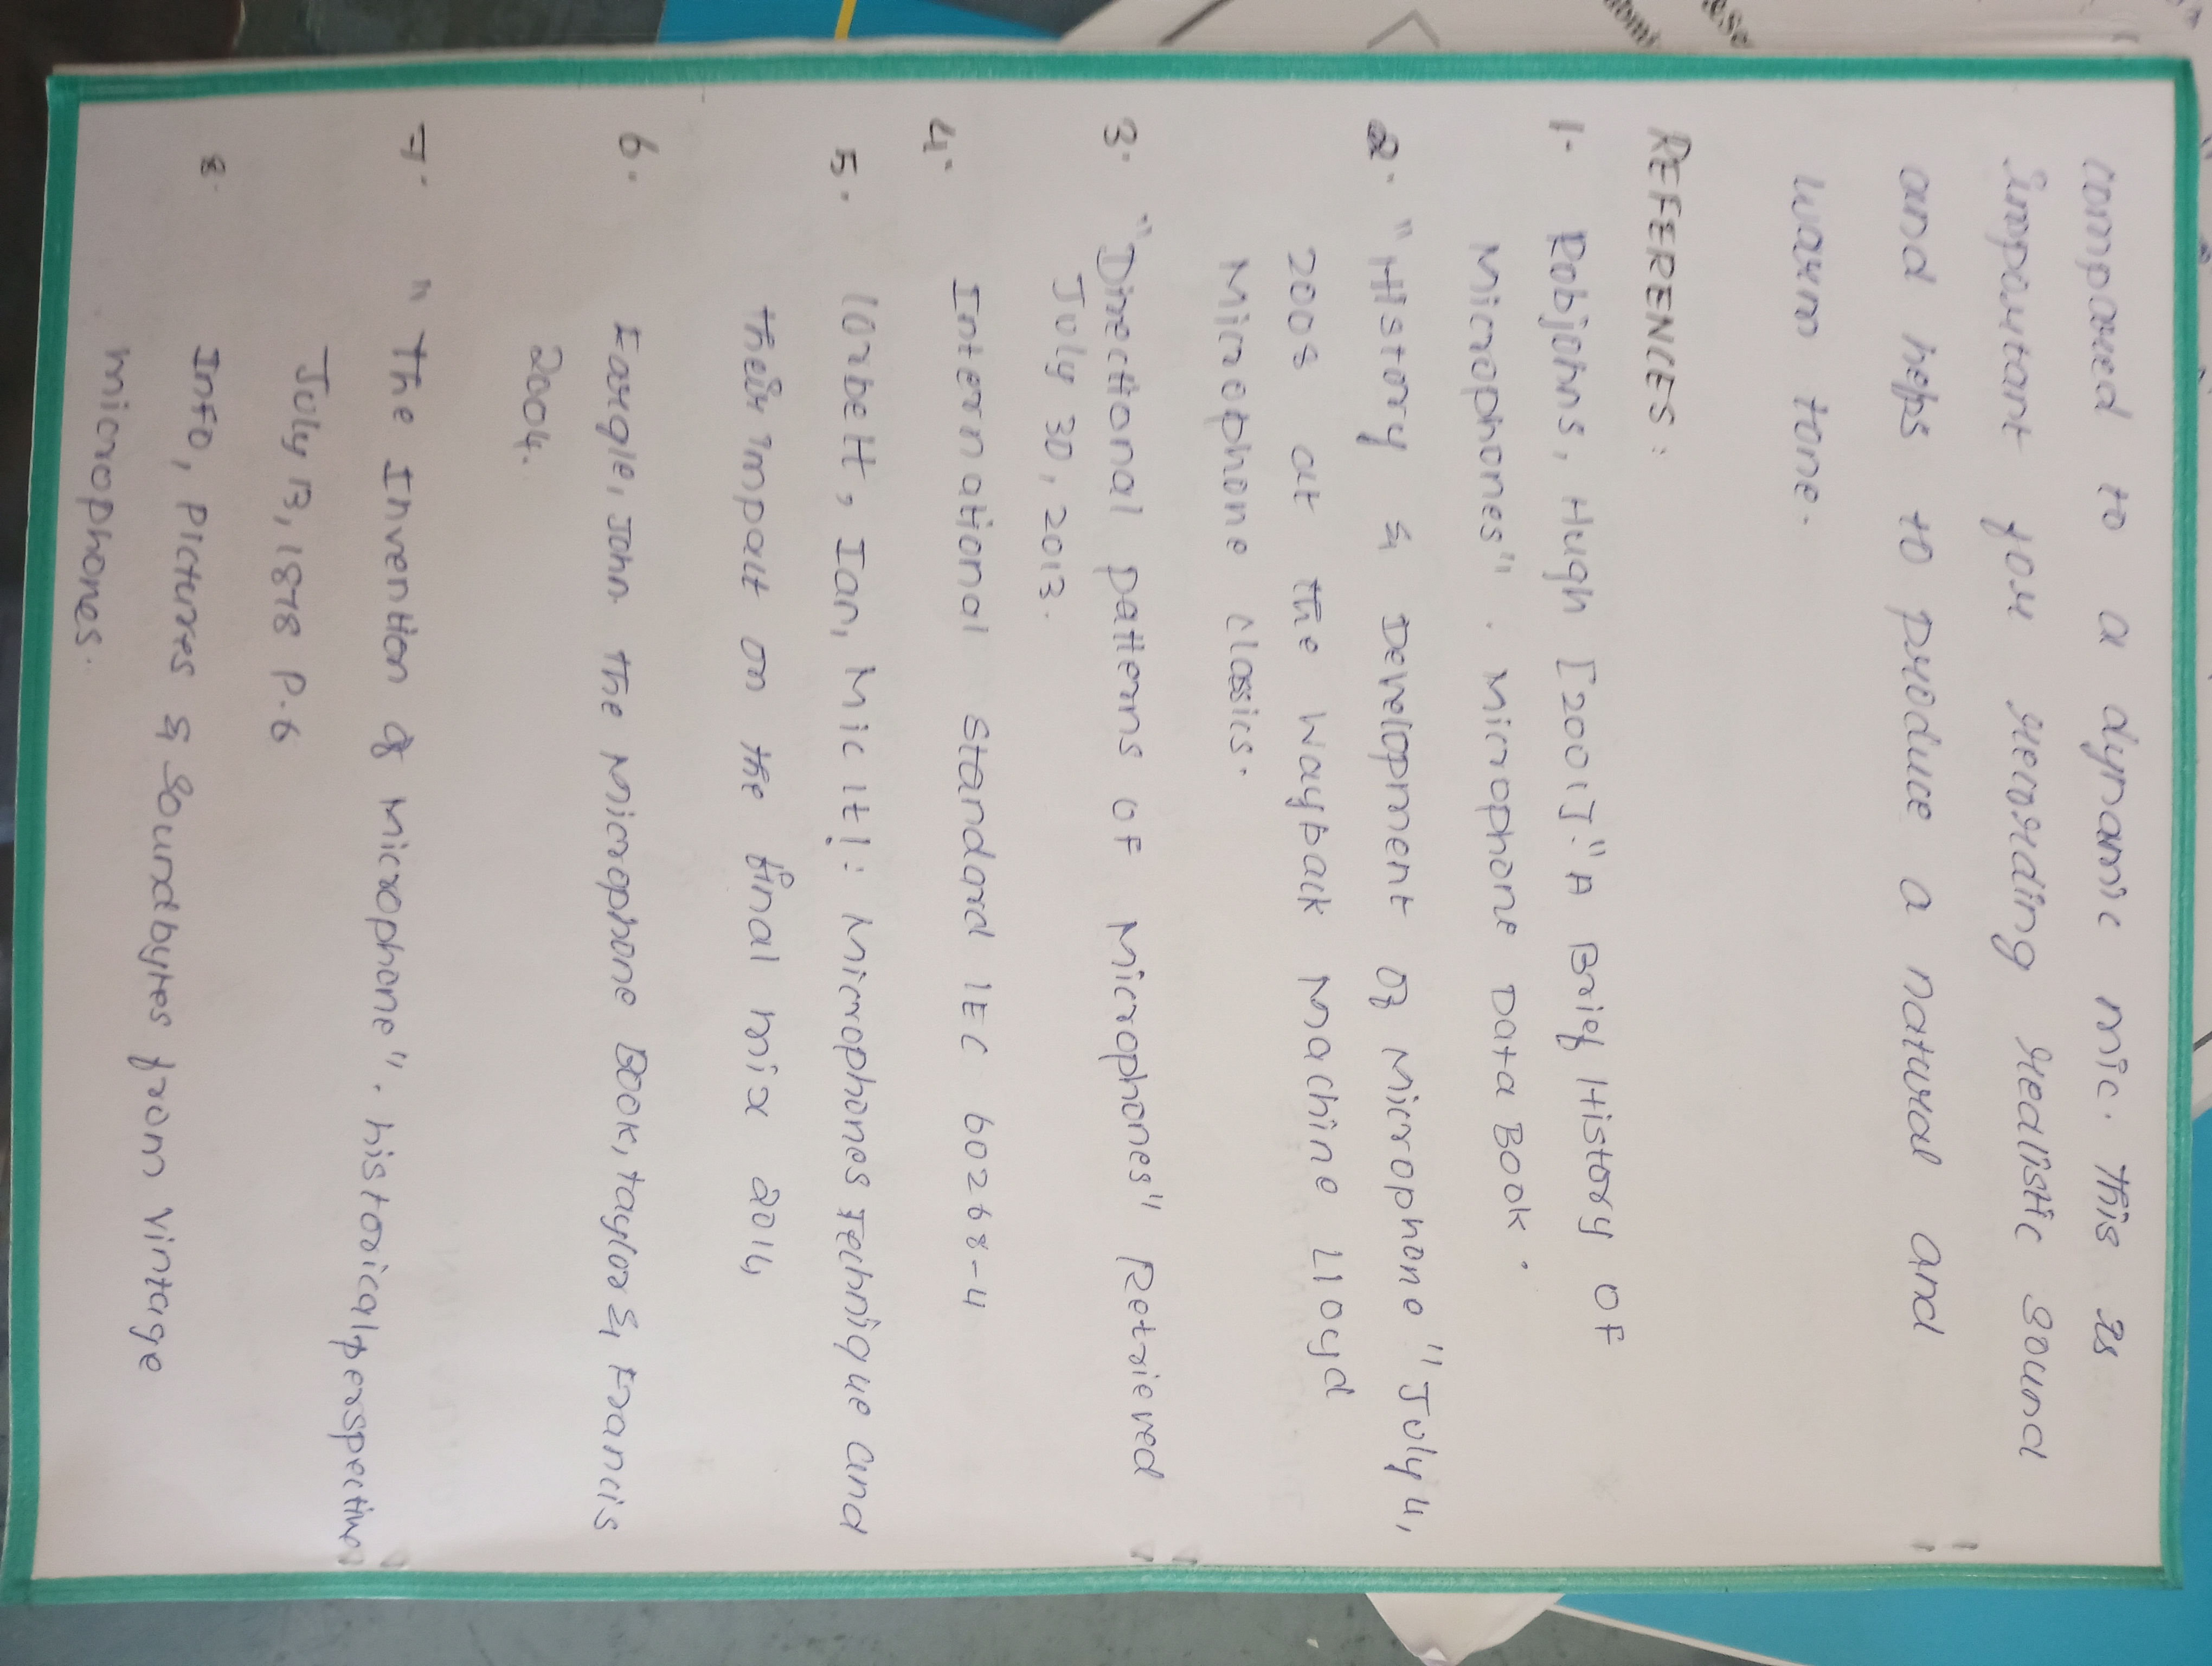 compared to a dynamic mic. This is
important for recording realistic sound
and helps to produce a natural and
warm tone.
REFERENCES:
1. Robjohns, Hugh [2001]. "A Brief History OF
Microphones". Microphone Data Book.
2. "History & Development Of Microphone" July 4,
2008 at the Wayback Machine Lloyd
Microphone Classics.
3. "Directional patterns OF Microphones" Retrieved
July 30, 2013.
4. International standard IEC 60268-4
5. Corbett, Ian, Mic it!: Microphones Technique and
their impact on the final mix 2014
6. Eargle, John the Microphone Book, taylor & Francis
2004.
7. "the Invention of microphone". historical perspective
July 13, 1878 P.6
8. Info, Pictures & Soundbytes from vintage
microphones.